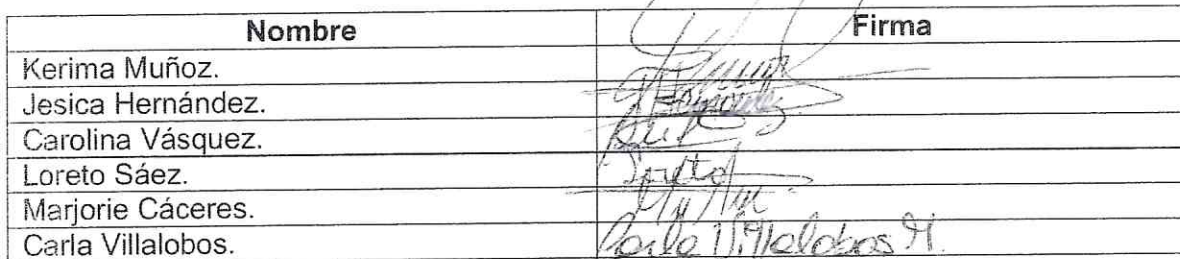 Nombre Firma
Kerima Muñoz.
Jesica Hernández. Hernández
Carolina Vásquez.
Loreto Sáez. Loreto
Marjorie Cáceres.
Carla Villalobos. Carla Villalobos M.